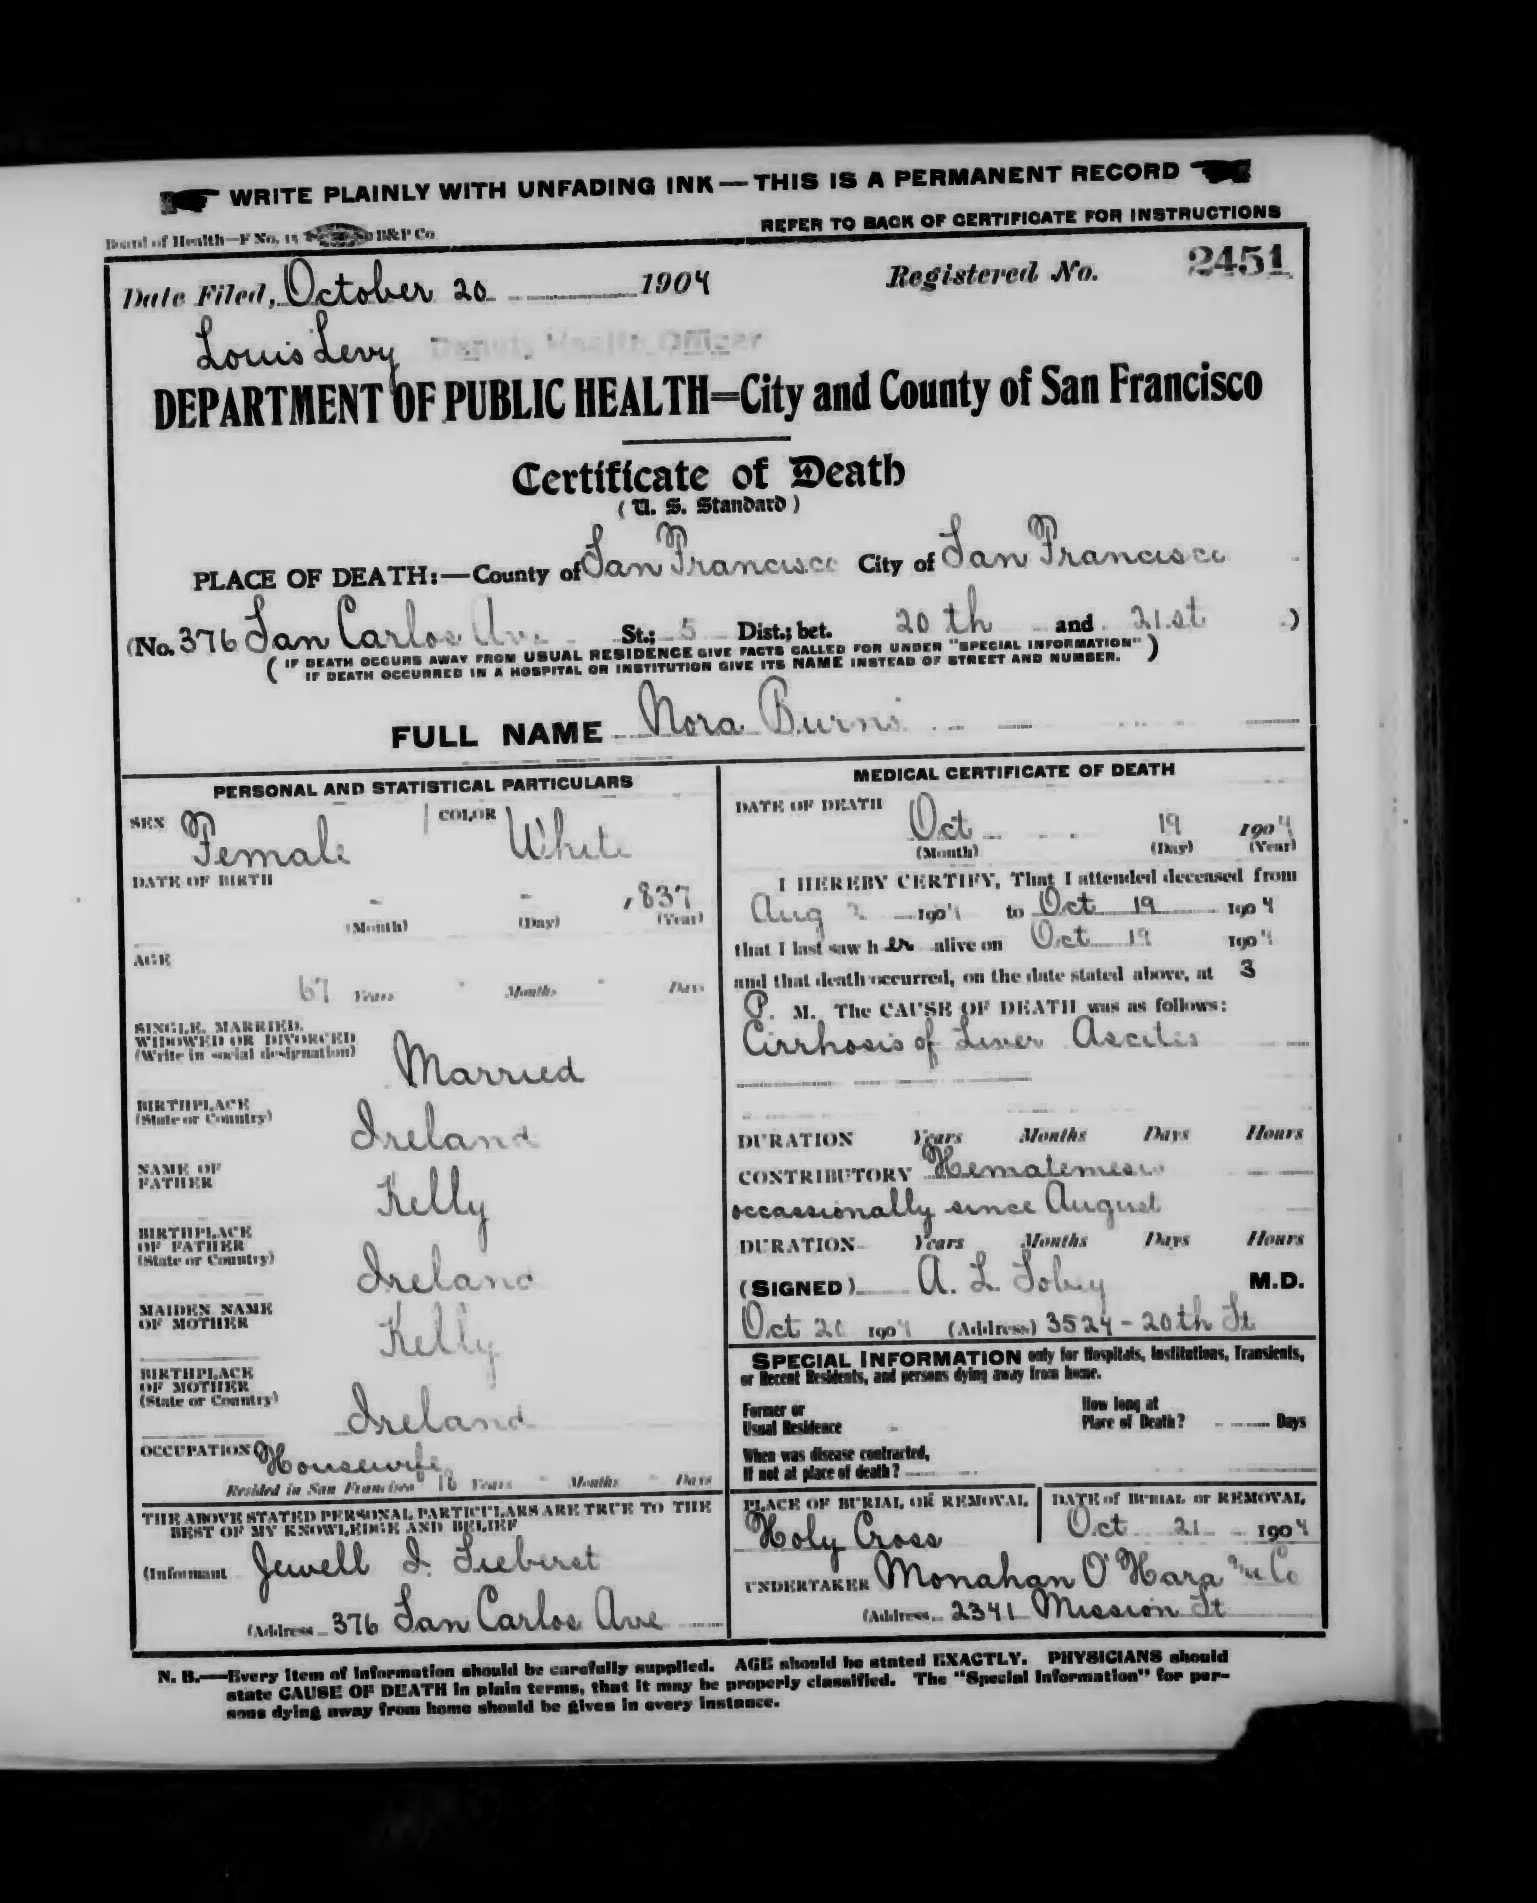 WRITE PLAINLY WITH UNFADING INK — THIS IS A PERMANENT RECORD
Board of Health—F No, 15 B&P Co
REFER TO BACK OF CERTIFICATE FOR INSTRUCTIONS
Date Filed, October 20 1904 Registered No. 2451
Louis Levy Deputy Health Officer
DEPARTMENT OF PUBLIC HEALTH=City and County of San Francisco
Certificate of Death
( U. S. Standard )
PLACE OF DEATH:—County of San Francisco City of San Francisco
(No. 376 San Carlos Ave St.; 5 Dist.; bet. 20th and 21st )
( IF DEATH OCCURS AWAY FROM USUAL RESIDENCE GIVE FACTS CALLED FOR UNDER "SPECIAL INFORMATION" )
IF DEATH OCCURRED IN A HOSPITAL OR INSTITUTION GIVE ITS NAME INSTEAD OF STREET AND NUMBER.
FULL NAME Nora Burns
PERSONAL AND STATISTICAL PARTICULARS
SEX Female COLOR White
DATE OF BIRTH
- - 1837
(Month) (Day) (Year)
AGE
67 Years - Months - Days
SINGLE, MARRIED,
WIDOWED OR DIVORCED
(Write in social designation) Married
BIRTHPLACE
(State or Country) Ireland
NAME OF
FATHER Kelly
BIRTHPLACE
OF FATHER
(State or Country) Ireland
MAIDEN NAME
OF MOTHER Kelly
BIRTHPLACE
OF MOTHER
(State or Country) Ireland
OCCUPATION Housewife
Resided in San Francisco 16 Years - Months - Days
THE ABOVE STATED PERSONAL PARTICULARS ARE TRUE TO THE
BEST OF MY KNOWLEDGE AND BELIEF
(Informant Jewell I.
(Address 376 San Carlos Ave
MEDICAL CERTIFICATE OF DEATH
DATE OF DEATH
Oct 19 1904
(Month) (Day) (Year)
I HEREBY CERTIFY, That I attended deceased from
Aug 2 1904 to Oct 19 1904
that I last saw her alive on Oct 19 1904
and that death occurred, on the date stated above, at 3
P. M. The CAUSE OF DEATH was as follows:
Cirrhosis of Liver Ascites
DURATION Years Months Days Hours
CONTRIBUTORY Hematemesis
occassionally since August
DURATION Years Months Days Hours
(SIGNED) A. L. Tobey M.D.
Oct 20 1904 (Address) 3524 - 20th St
SPECIAL INFORMATION only for Hospitals, Institutions, Transients,
or Recent Residents, and persons dying away from home.
Former or
Usual Residence -
How long at
Place of Death? Days
When was disease contracted,
If not at place of death?
PLACE OF BURIAL OR REMOVAL
Holy Cross
DATE of BURIAL or REMOVAL
Oct 21 1904
UNDERTAKER Monahan O'Hara & Co
(Address 2341 Mission St
N. B.—Every item of information should be carefully supplied. AGE should be stated EXACTLY. PHYSICIANS should
state CAUSE OF DEATH in plain terms, that it may be properly classified. The "Special Information" for per-
sons dying away from home should be given in every instance.